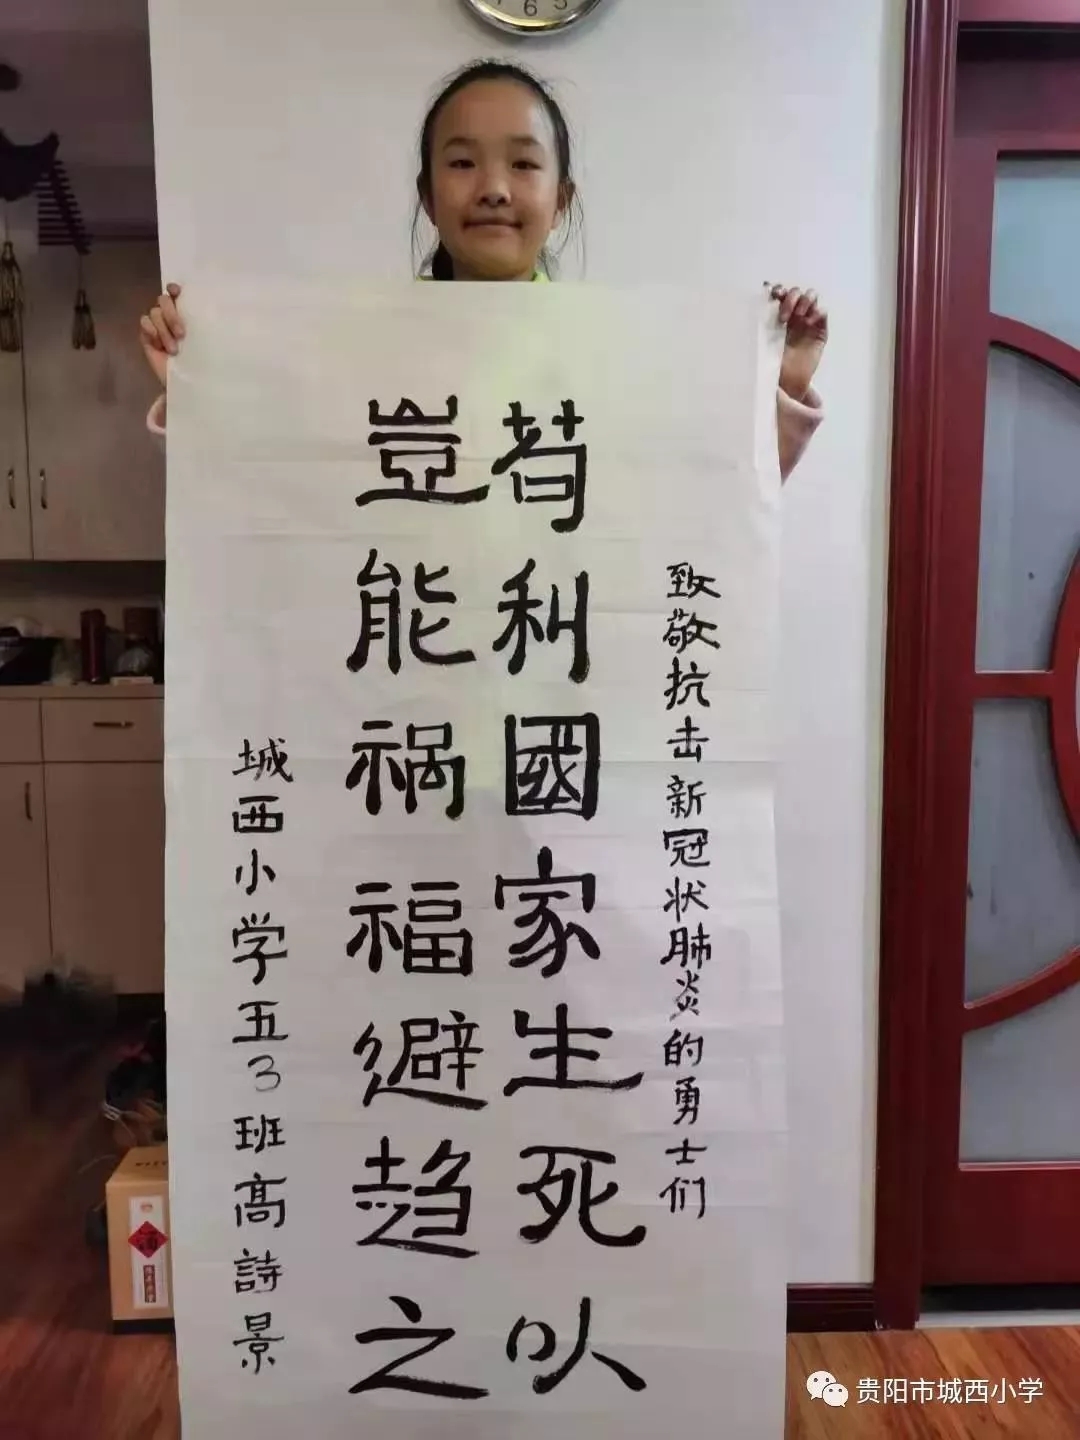 致敬抗击新冠状肺炎的勇士们
苟利國家生死以
豈能祸福避趋之
城西小学五3班高詩景
贵阳市城西小学
6
5